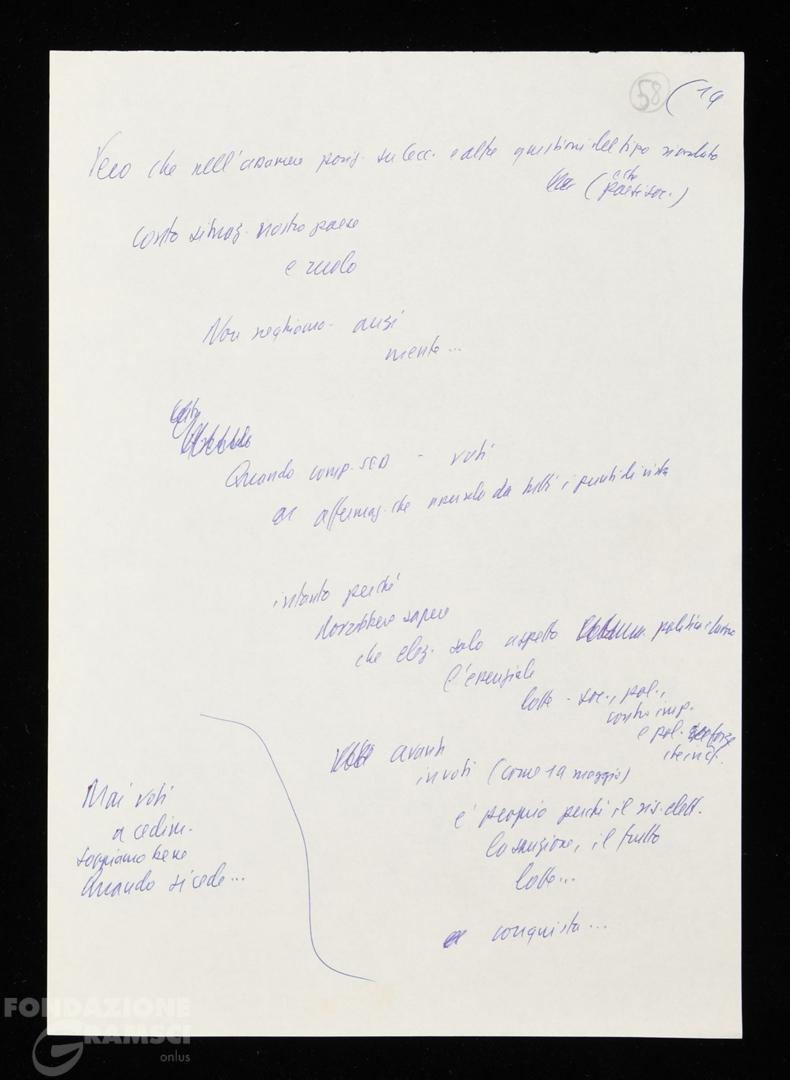 58 (14
Vero che nell'assumere posiz. su Cec. e altre questioni del tipo ricordato
(altri paesi soc.)
conto situaz. nostro paese
e ruolo
Non neghiamo anzi
merito...
Quando comp. - voti
affermaz. che da tutti i punti di vista
intanto perché
dovrebbero sapere
che elez. solo aspetto politica
l'essenziale
lotte - soc., pol.,
contro imp.
e pol.
avanti
in voti (come 19 maggio)
e' proprio perché il ris. elett.
la sanzione, il frutto
lotte...
conquista...
Mai voti
a cedim.
sappiamo bene
Quando si cede...
FONDAZIONE
GRAMSCI
onlus